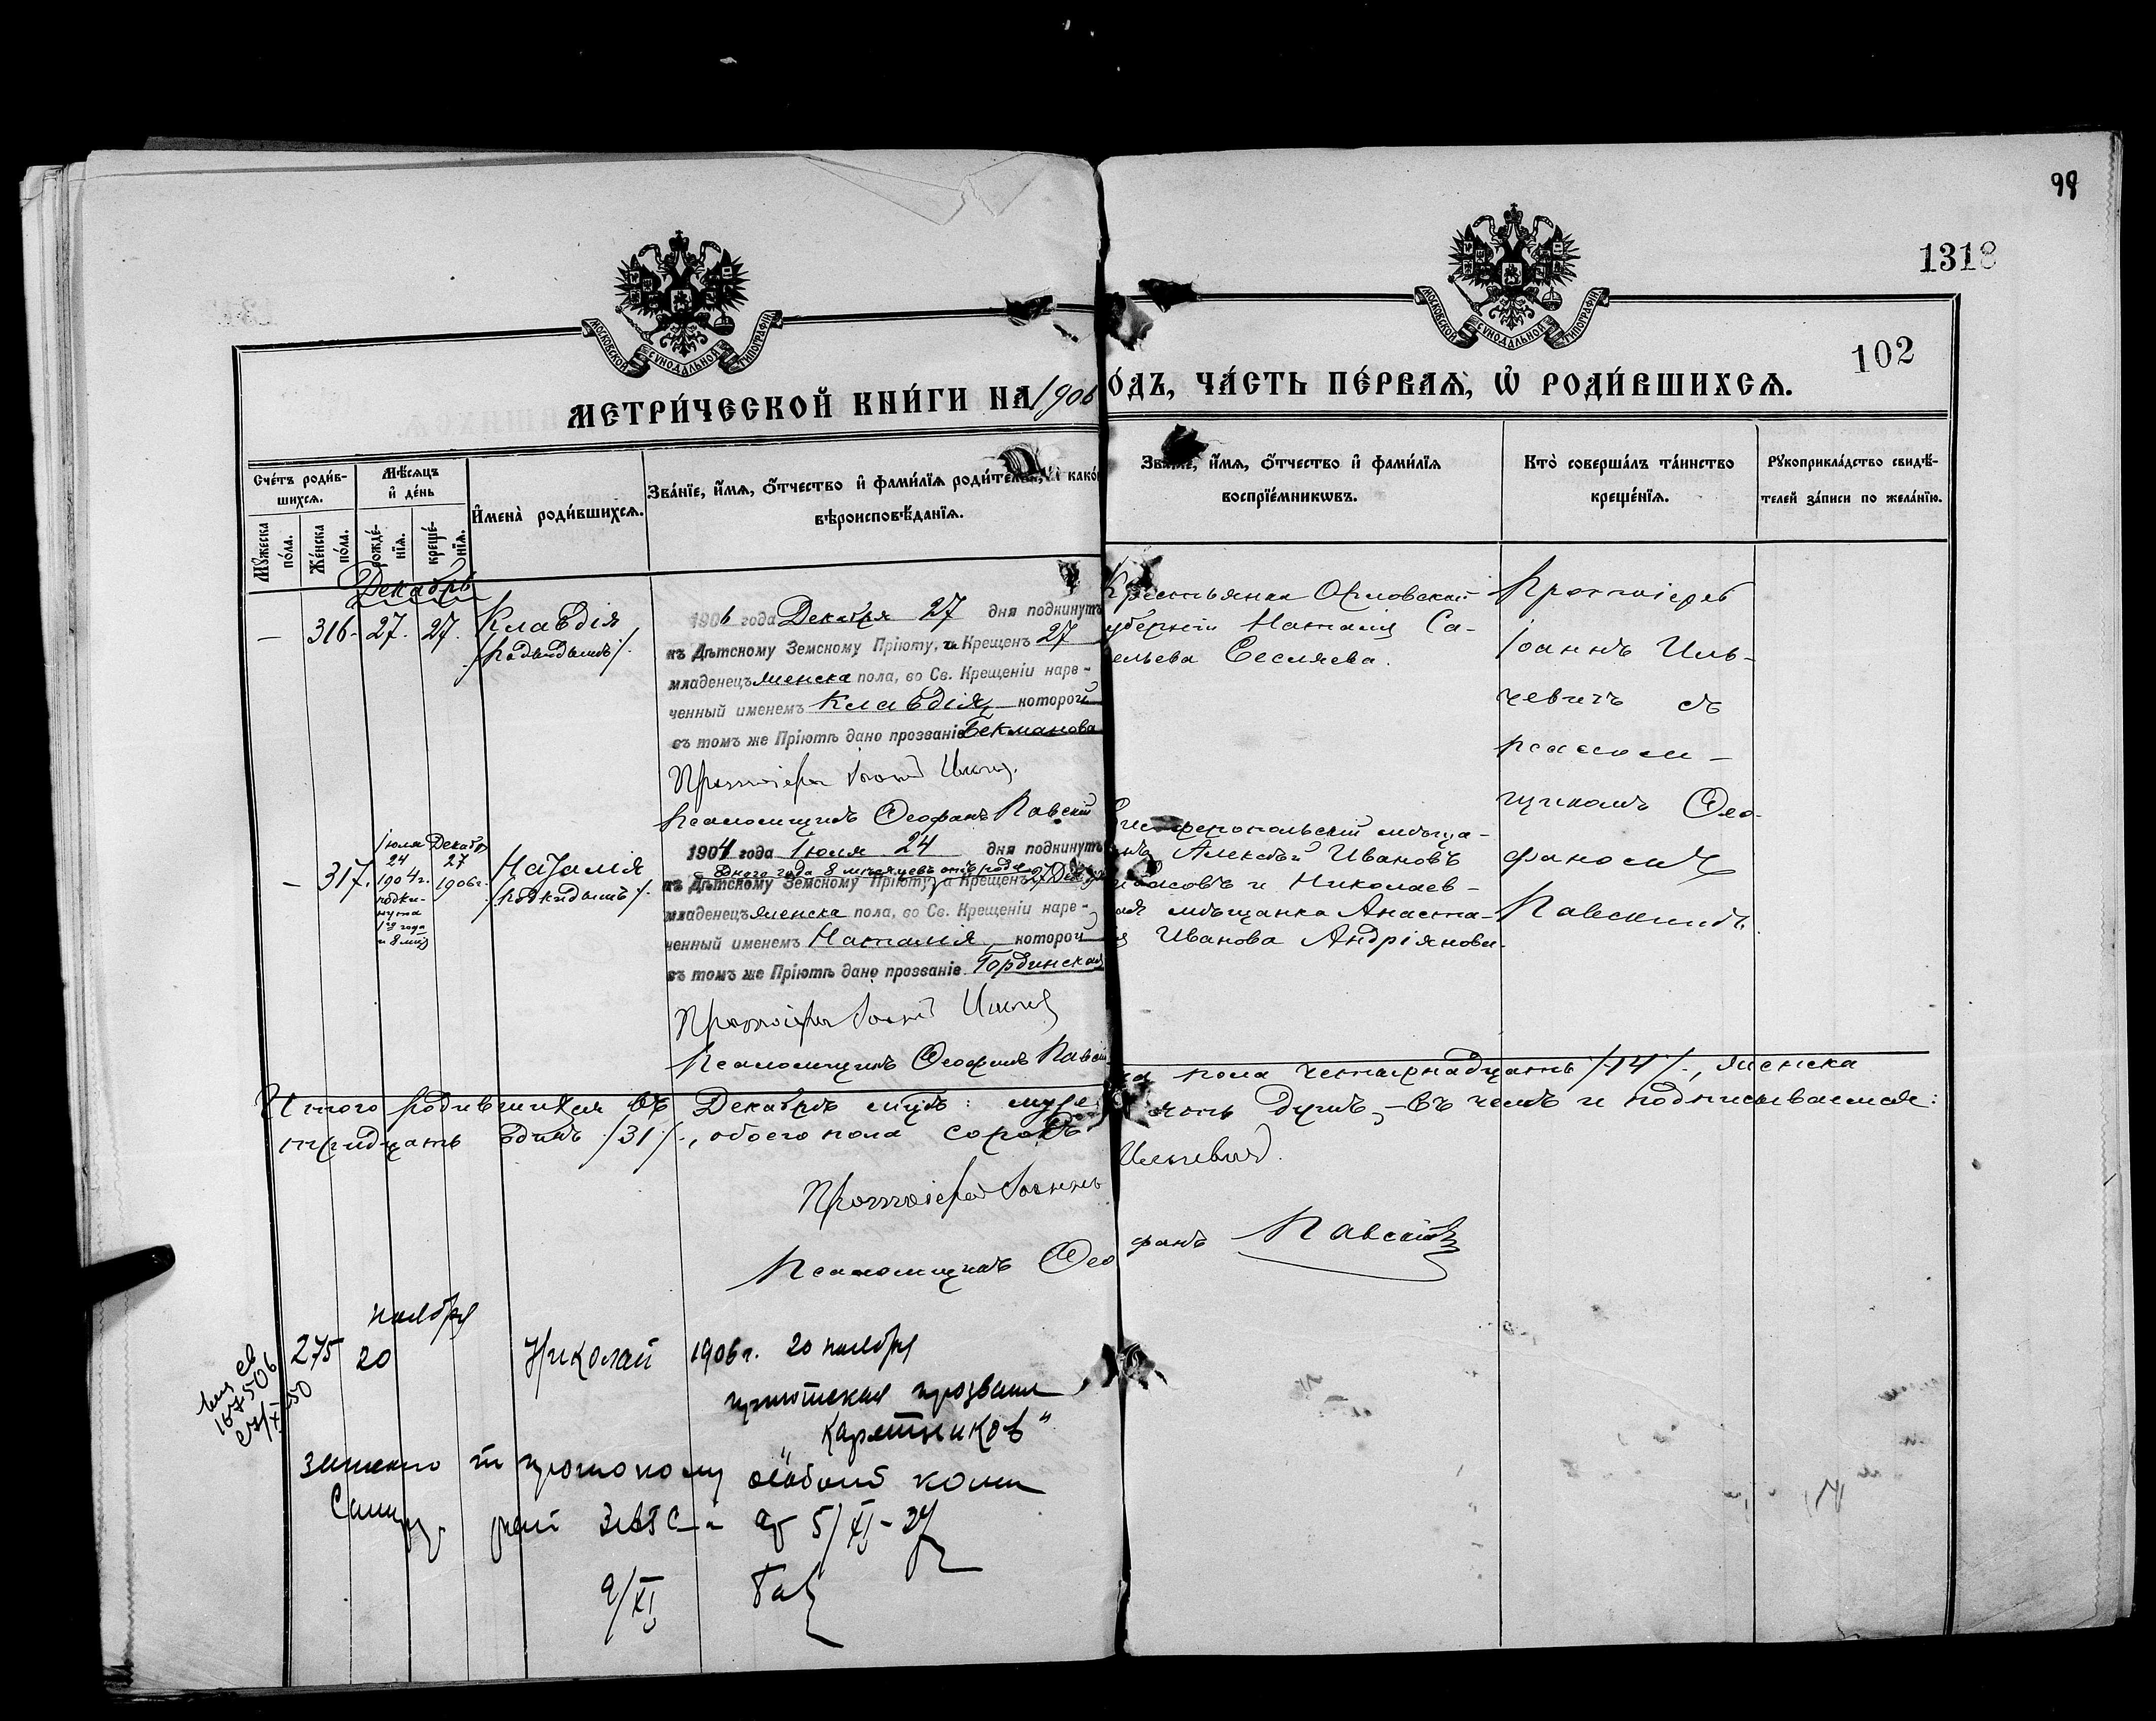 99
1318
102
МОСКОВСКОЙ СѴНОДАЛЬНОЙ ТИПОГРАФІИ
МОСКОВСКОЙ СѴНОДАЛЬНОЙ ТИПОГРАФІИ
МЕТРИ́ЧЕСКОЙ КНИ́ГИ НА 1906
О́ДЪ, ЧА́СТЬ ПЕ́РВАѦ, Ѽ РОДИ́ВШИХСѦ.
Сче́тъ роди́в-
шихсѧ.
Мꙋ́жеска по́ла.
Же́нска по́ла.
Мѣ́сяцъ и҆ де́нь
рожде́-
нїѧ.
креще́-
нїѧ.
И҆мена̀ роди́вшихсѧ.
Зва́нїе, и҆́мѧ, ѻ҆́тчество и҆ фами́лїѧ роди́телей, и҆ како́
вѣроисповѣ́данїѧ.
Зва́нїе, и҆́мѧ, ѻ҆́тчество и҆ фами́лїѧ
воспрїе́мникѡвъ.
Кто̀ соверша́лъ та́инство
креще́нїѧ.
Рꙋкоприкла́дство свидѣ́-
телей за́писи по жела́нїю.
Декабрь
— 316. 27. 27. Клавдія
/подкидышъ/.
1906 года Декабря 27 дня подкинутъ
къ Дѣтскому Земскому Пріюту, и Крещенъ 27
младенецъ женска пола, во Св. Крещеніи наре-
ченный именемъ Клавдія, которой
въ томъ же Пріютѣ дано прозваніе Бекманова
Протоіерей Іоаннъ
Псаломщикъ Ѳеофанъ Павскій
Крестьянка Орловской
губерніи Наталія Са-
вельева Сесляева.
Протоіерей
Іоаннъ Иль-
чевичъ съ
псалом-
щикомъ Ѳео-
фаномъ
Павскимъ.
— 317.
Іюля
24
1904 г.
подки-
нута
1го года
и 8 мѣс
Декабр
27
1906 г.
Наталія
/подкидышъ/.
1904 года Іюля 24 дня подкинутъ
одного года 8 мѣсяцевъ отъ роду
къ Дѣтскому Земскому Пріюту, а Крещенъ 27 Дек
младенецъ женска пола, во Св. Крещеніи наре-
ченный именемъ Наталія, которой
въ томъ же Пріютѣ дано прозваніе Гординская
Протоіерей Іоаннъ
Псаломщикъ Ѳеофанъ Павскій
Алексѣй Ивановъ
и Николаев-
мѣщанка Анаста-
Иванова Андріянова.
Итого родившихся въ Декабрѣ мцѣ: муже
ка пола четырнадцать /14/., женска
тридцать одинъ /31/., обоего пола сорокъ
пять душъ, — въ чемъ и подписываемся:
Протоіерей Іоаннъ
Ильчевичъ.
Псаломщикъ Ѳео
фанъ Павскій
ноября
275 20 Николай 1906 г. 20 ноября
приютская прозвани
"Каретников"
по протоколу особой коми
ЗАГС 5/XI-
9/XI